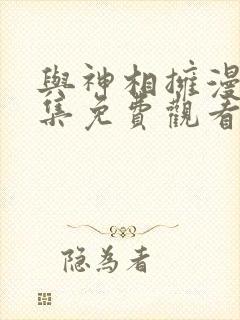 與神相擁漫
集免費觀看
隐為者